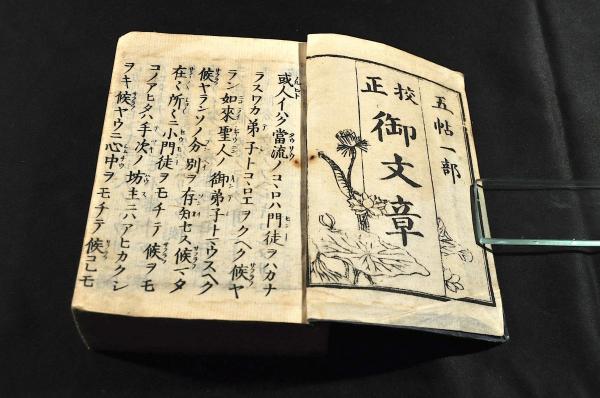 五帖一部
校正
御文章
或人イハク當流ノコヽロハ門徒ヲハカナ
ラスワカ弟子トコヽロエヲクヘク候ヤ
ラン如來聖人ノ御弟子トマウスヘク
候ヤランソノ分別ヲ存知セス候マタ
在々所々ニ小門徒ヲモチテ候ヲモ
コノアヒタハ手次ノ坊主ニハアヒカクシ
ヲキ候ヤウニ心中ヲモチテ候コレモ